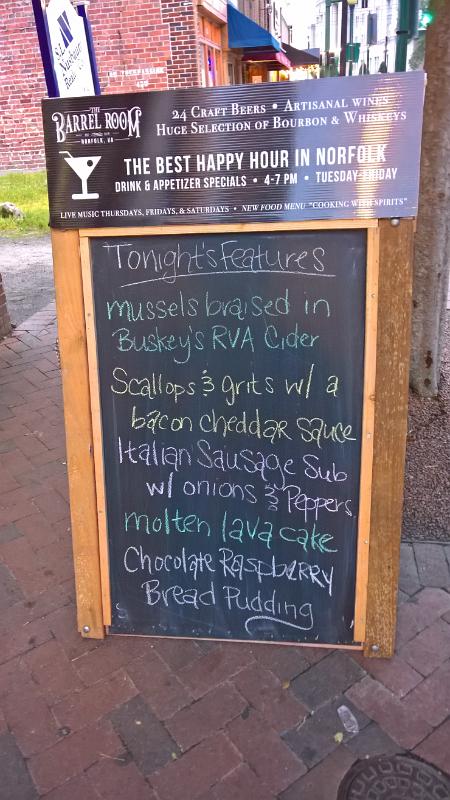 THE
BARREL ROOM
NORFOLK, VA
24 CRAFT BEERS • ARTISANAL WINES
HUGE SELECTION OF BOURBON & WHISKEYS
THE BEST HAPPY HOUR IN NORFOLK
DRINK & APPETIZER SPECIALS • 4-7 PM • TUESDAY-FRIDAY
LIVE MUSIC THURSDAYS, FRIDAYS, & SATURDAYS • NEW FOOD MENU "COOKING WITH SPIRITS"
Tonight's Features
mussels braised in
Buskey's RVA Cider
Scallops & grits w/ a
bacon cheddar sauce
Italian Sausage Sub
w/ onions & Peppers
molten lava cake
Chocolate Raspberry
Bread Pudding